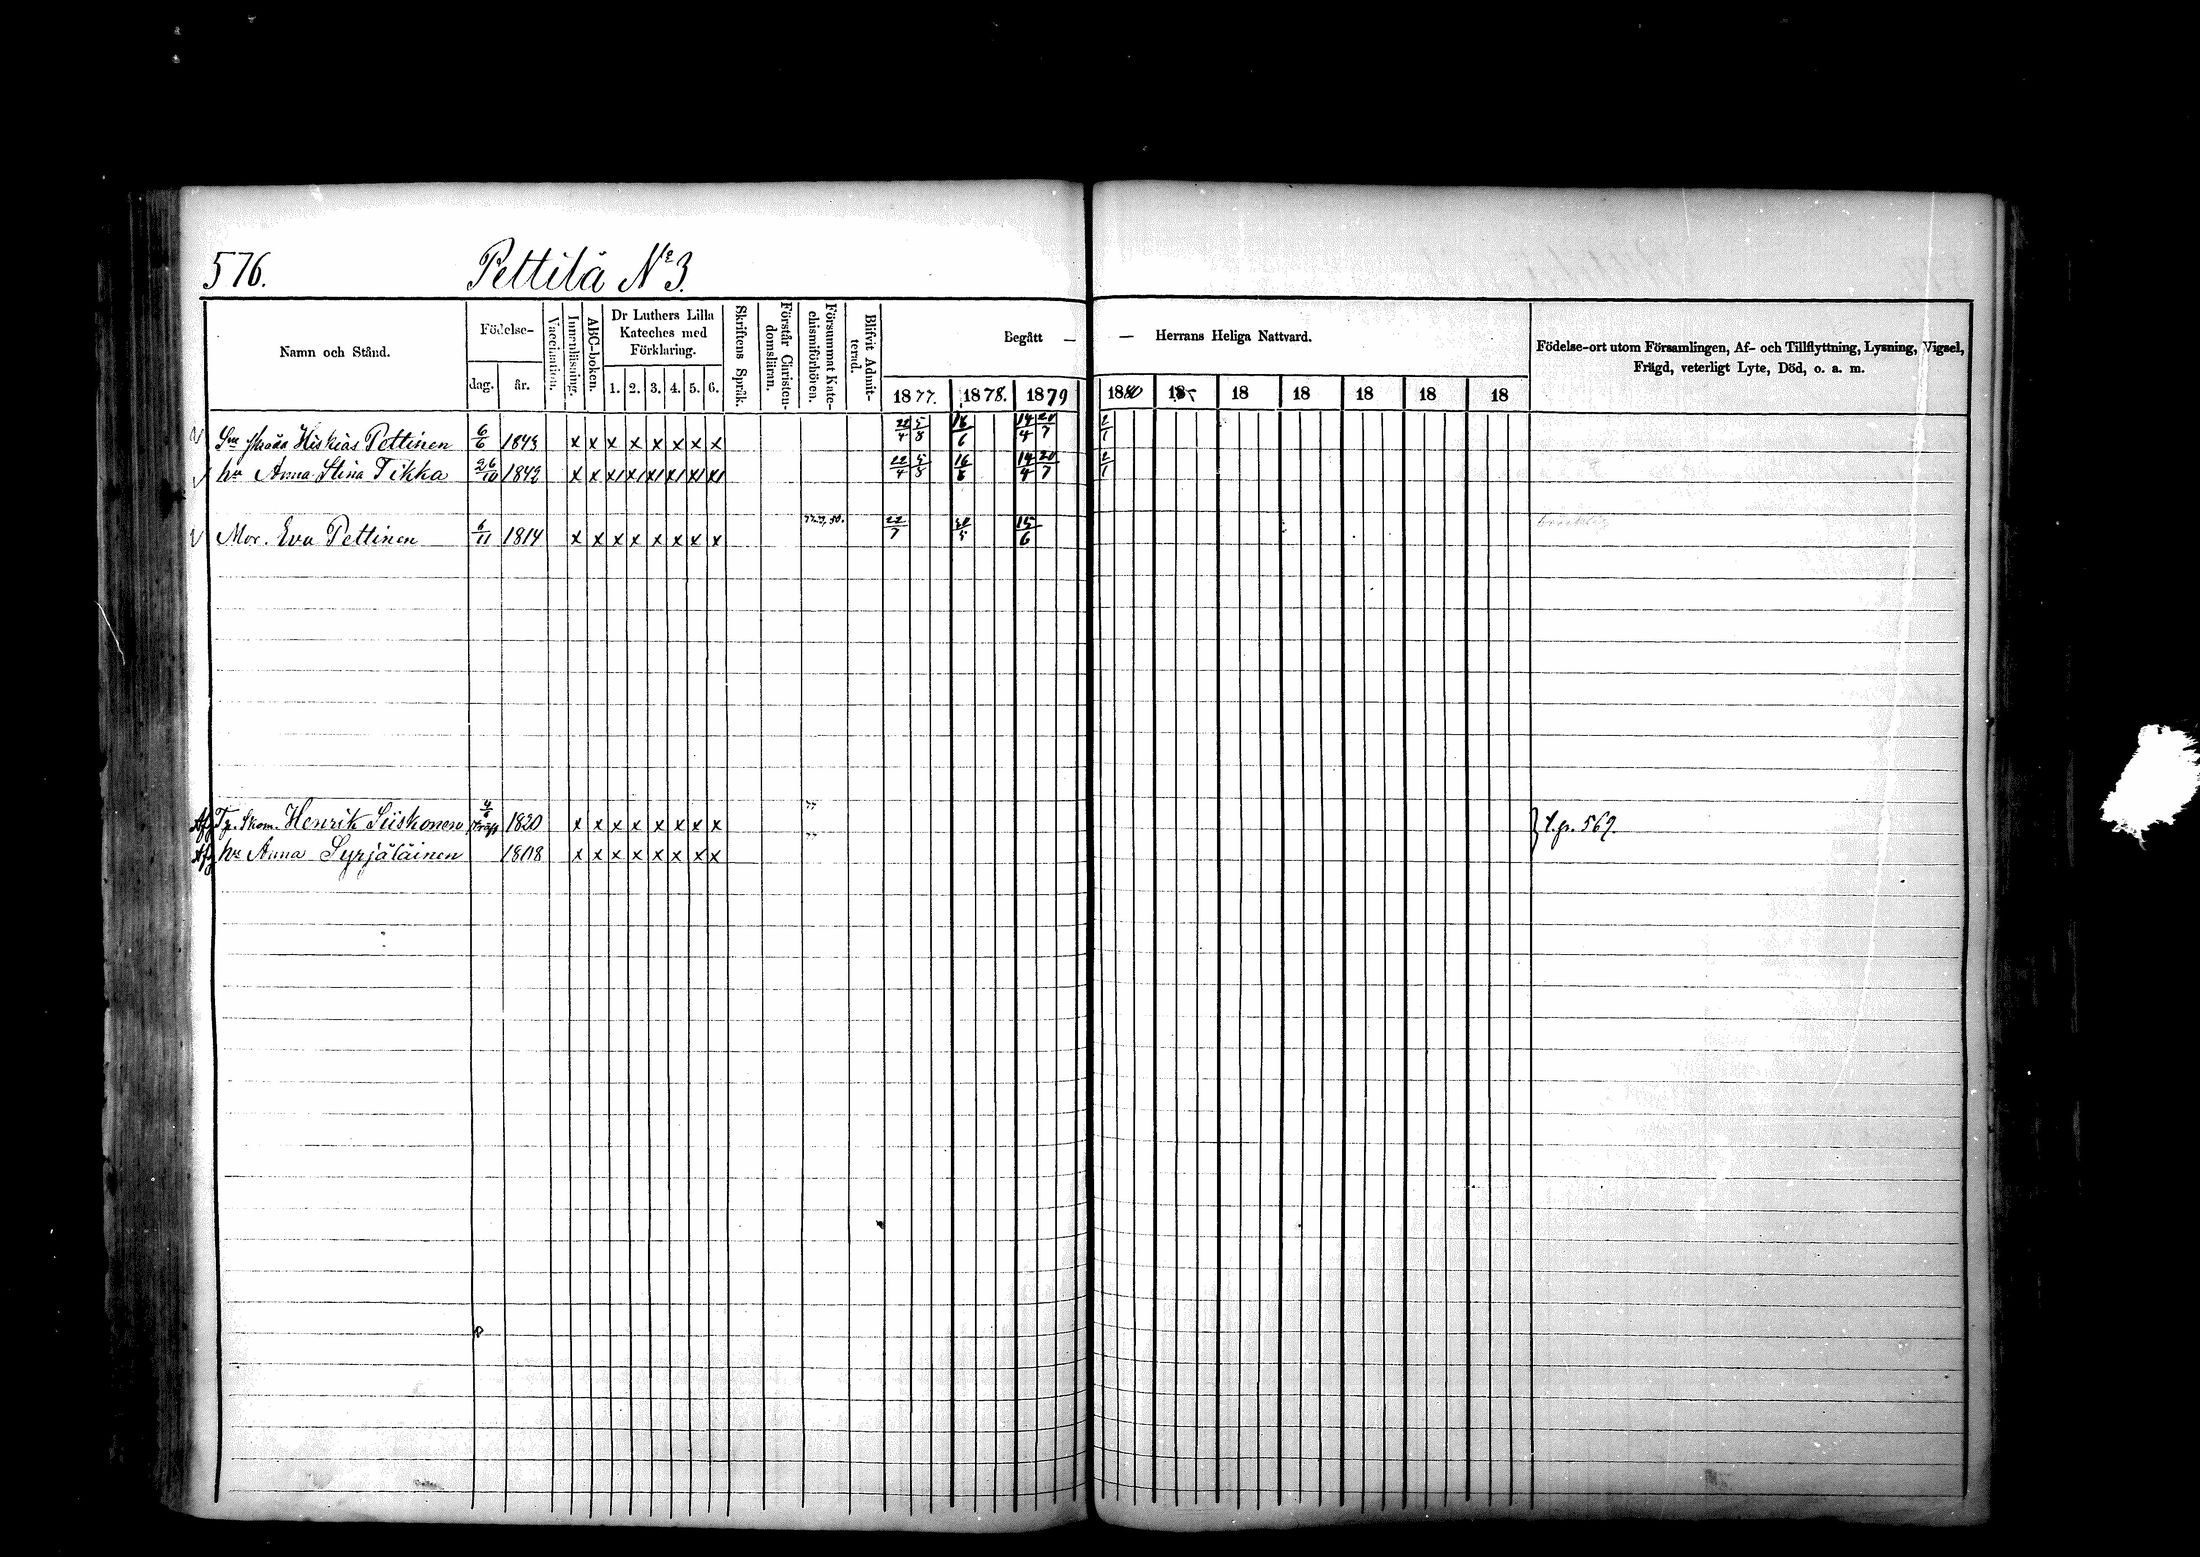 576. Pettilä Nº 3.
Namn och Stånd.
Födelse-
dag.
år.
Vaccination.
Innenläsning.
ABC-boken.
Dr Luthers Lilla
Kateches med
Förklaring.
1. 2. 3. 4. 5. 6.
Skriftens Språk.
Förstår Christen-
domsläran.
Försummat Kate-
chismiförhören.
Blifvit Admit-
terad.
Begått — — Herrans Heliga Nattvard.
1877. 1878. 1879 1880 18 18 18 18 18 18
Födelse-ort utom Församlingen, Af- och Tillflyttning, Lysning, Vigsel,
Frägd, veterligt Lyte, Död, o. a. m.
Hiskias Pettinen 6/6 1843 x x x x x x x x 22/4 5/8 16/6 14/4 20/7 2/1
hu Anna Stina Tikka 26/10 1842 x x x x x x x x 22/4 5/8 16/6 14/4 20/7 2/1
Mor. Eva Pettinen 6/11 1814 x x x x x x x x 22/7 30/5 15/6
Afg Tg. Skom. Henrik Siiskonen 4/6 1820 x x x x x x x x 77 t.gr. 569.
Afg hu Anna Syrjäläinen 1808 x x x x x x x x 77